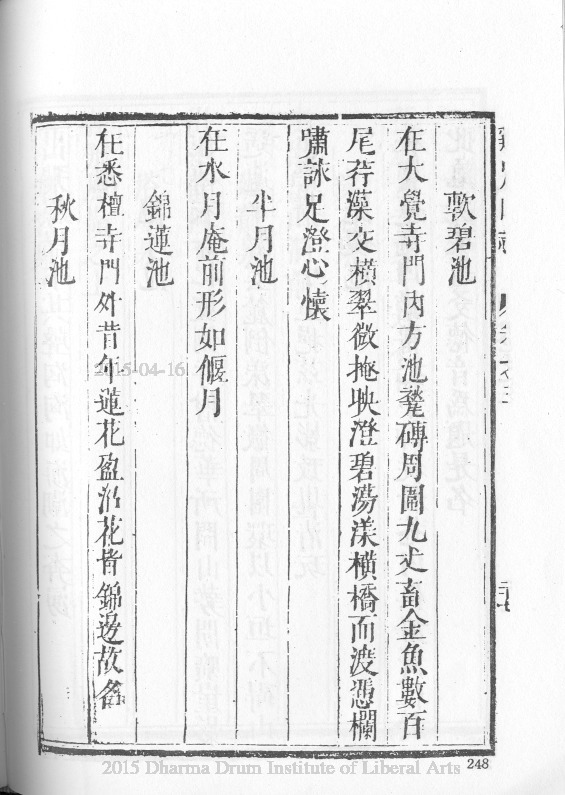 軟碧池
在大覺寺門內方池甃磚周圍九丈畜金魚數百
尾荇藻交橫翠微掩映澄碧蕩漾橫橋而渡憑欄
嘯詠足澄心懷
半月池
在水月庵前形如偃月
錦蓮池
在悉檀寺門外昔年蓮花盈沼花皆錦邊故名
秋月池
248
2015-04-16
2015 Dharma Drum Institute of Liberal Arts